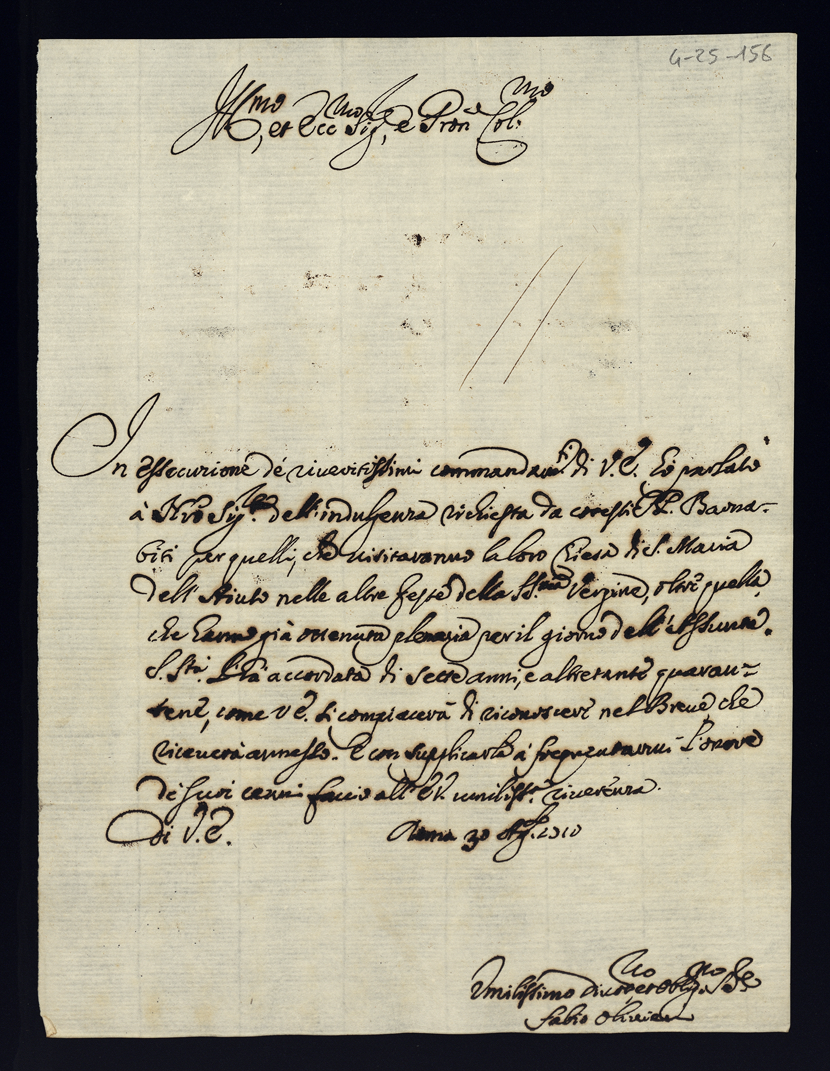 4-25-156
Ill.mo, et Ecc.mo Sig.e, e Pron Col.mo
In essecuzione de riveritissimi commandam.ti di V.E. hò parlato
à Nro Sig.re dell'indulgenza richiesta da cotesti PP. Barna-
biti per quelli, che visitaranno la loro Chiesa di S. Maria
dell'Aiuto nelle altre feste della SS.ma Vergine, oltre quella,
che hanno già ottenuta plenaria per il giorno dell'Assunta.
S. Stà. l'hà accordata di sette anni, e altretante quaran-
tene, come V.E. si compiacerà di riconoscere nel Breve, che
riceverà annesso. E con supplicarla à frequentarmi l'onore
de suoi cenni faccio all'E.V. umiliss.a riverenza.
Di V.E. Roma 30 Ag.to 1710
Umilissimo Div.mo et Obblig.mo
Fabio Olivieri